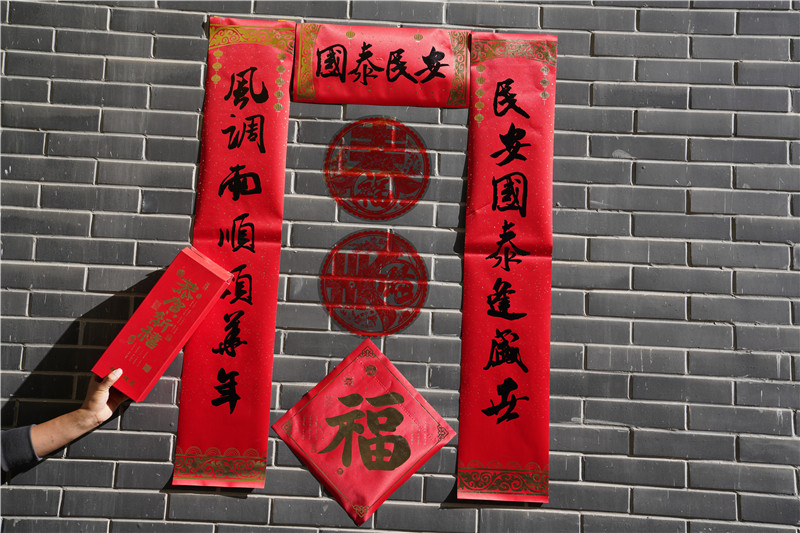 國泰民安
民安國泰逢盛世
風調雨順頌華年
福